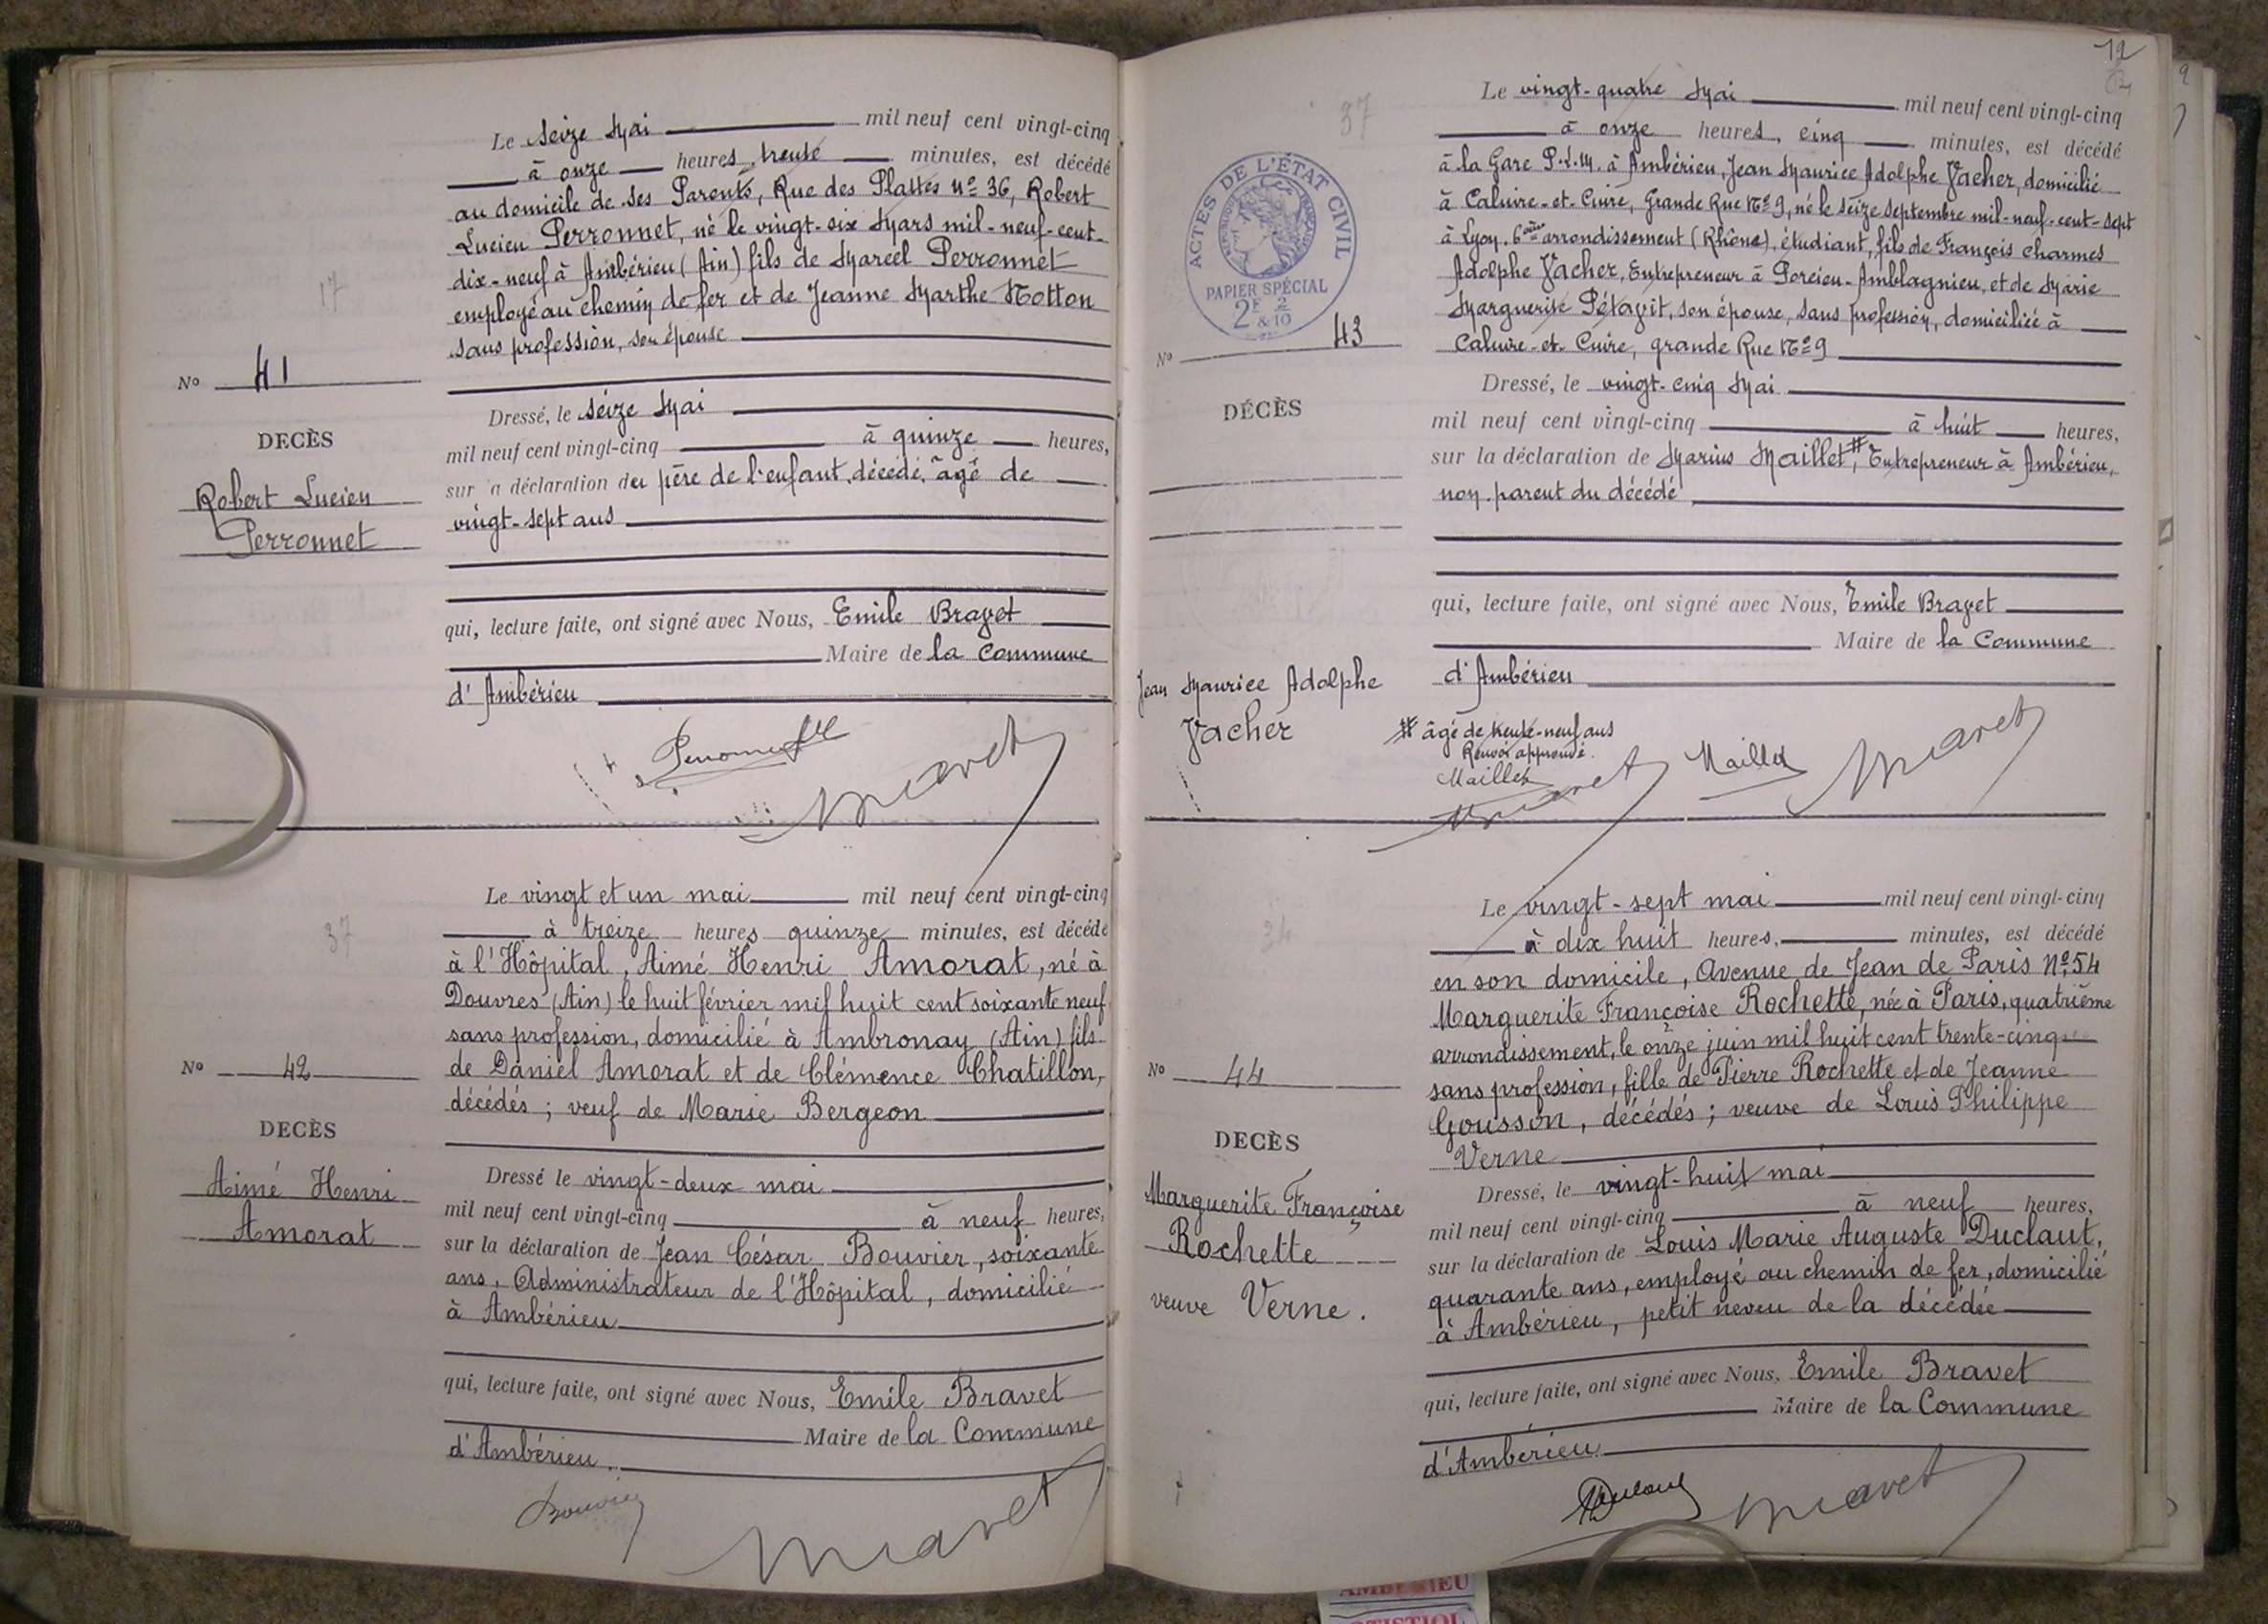 Le seize Mai mil neuf cent vingt-cinq
à onze heures, trente minutes, est décédé
au domicile de ses Parents, Rue des Plattes Nº 36, Robert
Lucien Perronnet, né le vingt-six Mars mil-neuf-cent-
dix-neuf à Ambérieu (Ain) fils de Marcel Perronnet
employé au chemin de fer et de Jeanne Marthe Notton
sans profession, son épouse
No 41
DECÈS
Robert Lucien
Perronnet
Dressé, le seize Mai
mil neuf cent vingt-cinq à quinze heures,
sur a déclaration du père de l'enfant, décédé, âgé de
vingt-sept ans
qui, lecture faite, ont signé avec Nous, Emile Bravet
Maire de la Commune
d'Ambérieu
Bravet
Le vingt et un mai mil neuf cent vingt-cinq
à treize heures quinze minutes, est décédé
à l'Hôpital, Aimé Henri Amorat, né à
Douvres (Ain) le huit février mil huit cent soixante neuf
sans profession, domicilié à Ambronay (Ain) fils
de Daniel Amorat et de Clémence Chatillon,
décédés; veuf de Marie Bergeon
37
No 42
DECÈS
Aimé Henri
Amorat
Dressé le vingt-deux mai
mil neuf cent vingt-cinq à neuf heures,
sur la déclaration de Jean César Bouvier, soixante
ans, Administrateur de l'Hôpital, domicilié
à Ambérieu
qui, lecture faite, ont signé avec Nous, Emile Bravet
Maire de la Commune
d'Ambérieu.
Bouvier
Bravet
12
37
Le vingt-quatre Mai mil neuf cent vingt-cinq
à onze heures, cinq minutes, est décédé
à la Gare P.L.M. à Ambérieu, Jean Maurice Adolphe Vacher, domicilié
à Caluire-et-Cuire, Grande Rue Nº 9, né le seize septembre mil-neuf-cent-sept
à Lyon, 6ème arrondissement (Rhône), étudiant, fils de François Charmes
Adolphe Vacher, Entrepreneur à Porcieu-Amblagnieu, et de Marie
Marguerite Pétavit, son épouse, sans profession, domiciliée à
Caluire-et-Cuire, grande Rue Nº 9
ACTES DE L'ÉTAT CIVIL
PAPIER SPÉCIAL
2F & 2/10
No 43
DÉCÈS
Jean Maurice Adolphe
Vacher
Dressé, le vingt-cinq Mai
mil neuf cent vingt-cinq à huit heures,
sur la déclaration de Marius Maillet,# Entrepreneur à Ambérieu,
non parent du décédé
qui, lecture faite, ont signé avec Nous, Emile Bravet
Maire de la Commune
d'Ambérieu
# âgé de trente-neuf ans
Renvoi approuvé.
Maillet
Bravet
Maillet
Bravet
Le vingt-sept mai mil neuf cent vingt-cinq
à dix huit heures, minutes, est décédé
en son domicile, Avenue de Jean de Paris Nº 54
Marguerite Françoise Rochette, née à Paris, quatrième
arrondissement, le onze juin mil huit cent trente-cinq
sans profession, fille de Pierre Rochette et de Jeanne
Gousson, décédés; veuve de Louis Philippe
Verne
No 44
DECÈS
Marguerite Françoise
Rochette
veuve Verne.
Dressé, le vingt-huit mai
mil neuf cent vingt-cinq à neuf heures,
sur la déclaration de Louis Marie Auguste Duclaut,
quarante ans, employé au chemin de fer, domicilié
à Ambérieu, petit neveu de la décédée
qui, lecture faite, ont signé avec Nous, Emile Bravet
Maire de la Commune
d'Ambérieu
Bravet